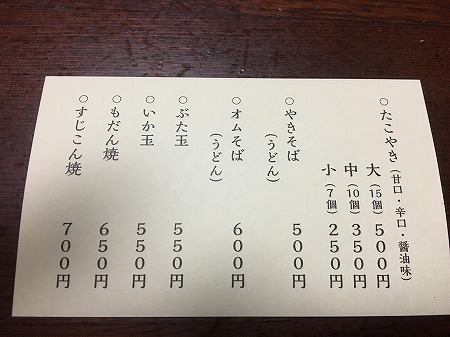 ○たこやき(甘口・辛口・醤油味)
大(15個)500円
中(10個)350円
小(7個)250円
○やきそば 500円
(うどん)
○オムそば 600円
(うどん)
○ぶた玉 550円
○いか玉 550円
○もだん焼 650円
○すじこん焼 700円